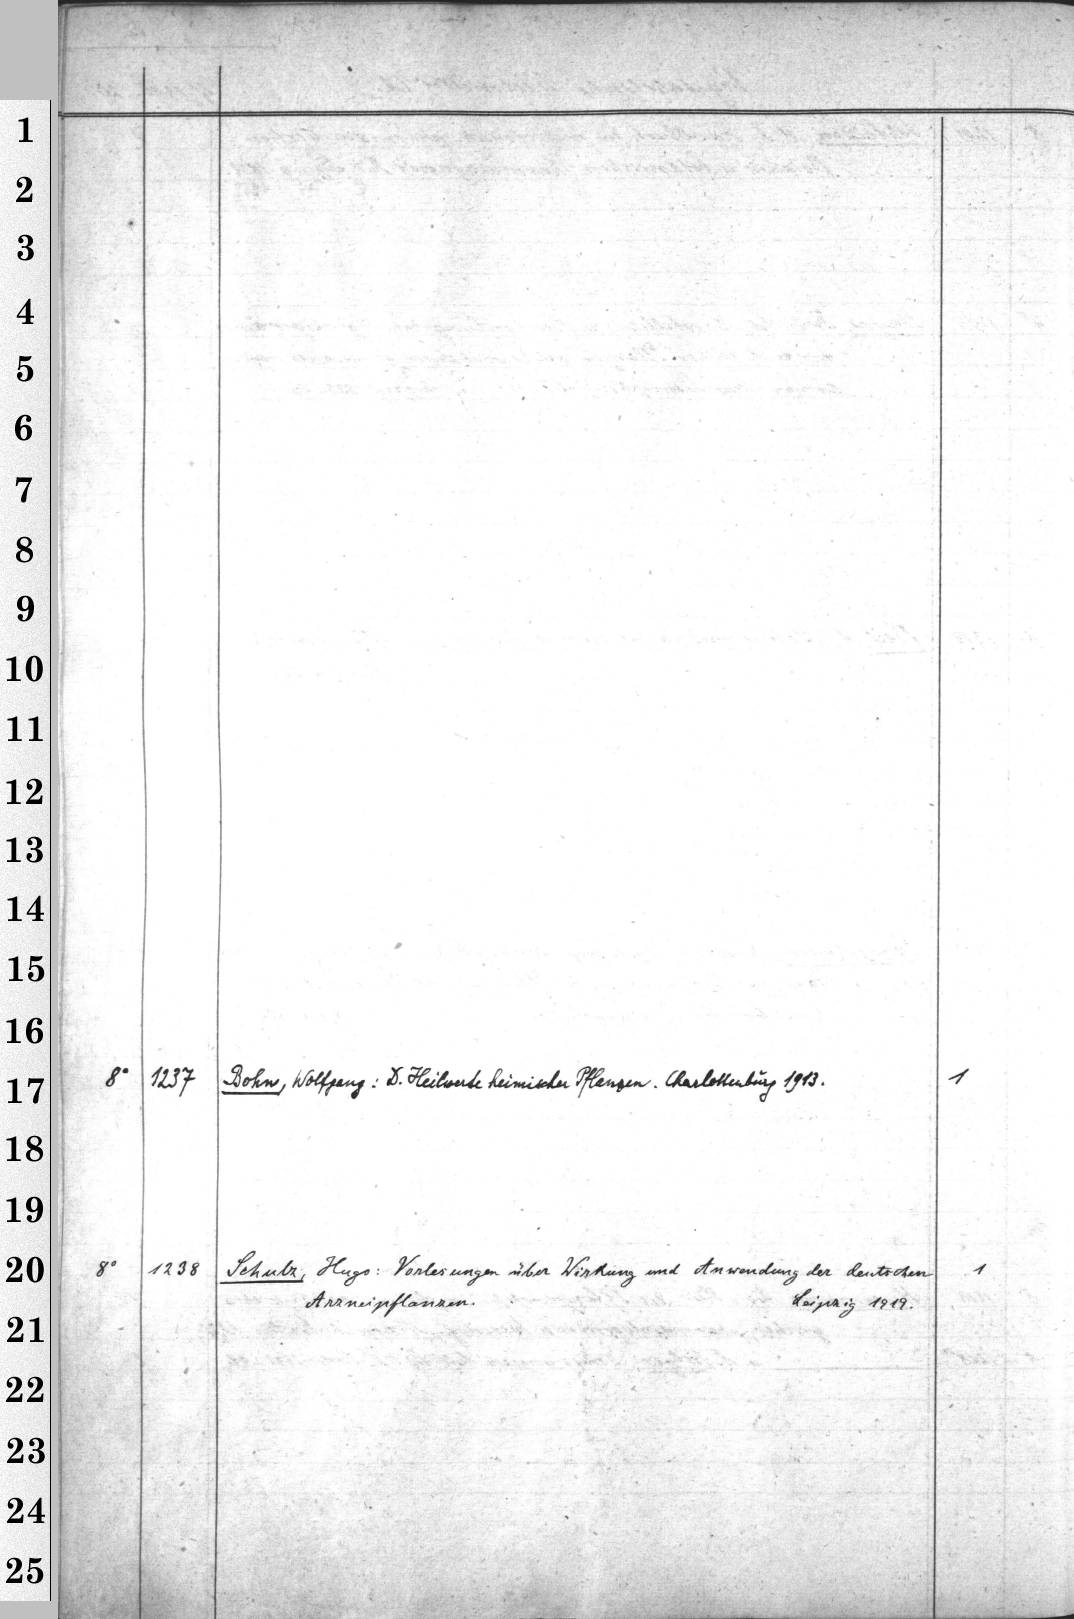 1
2
3
4
5
6
7
8
9
10
11
12
13
14
15
16
17
8° 1237 Bohn, Wolfgang: D. Heilwerte heimischer Pflanzen. Charlottenburg 1913. 1
18
19
20
8° 1238 Schulz, Hugo: Vorlesungen über Wirkung und Anwendung der deutschen 1
Arzneipflanzen. Leipzig 1919.
21
22
23
24
25